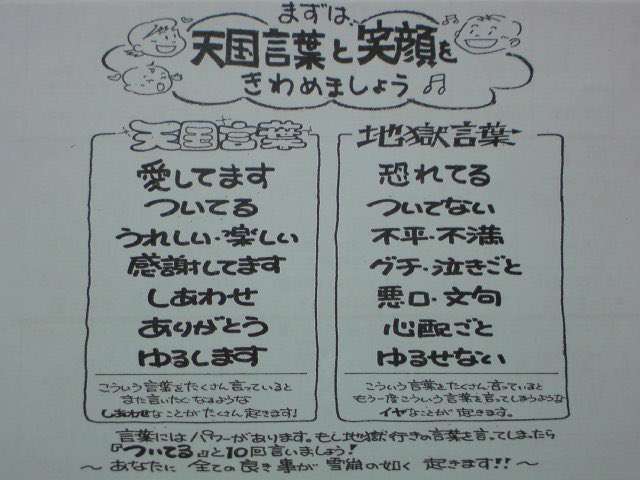 まずは、
天国言葉と笑顔を
きわめましょう♫
天国言葉
愛してます
ついてる
うれしい・楽しい
感謝してます
しあわせ
ありがとう
ゆるします
こういう言葉をたくさん言っていると
また言いたくなるような
しあわせなことがたくさん起きます!
地獄言葉
恐れてる
ついてない
不平・不満
グチ・泣きごと
悪口・文句
心配ごと
ゆるせない
こういう言葉をたくさん言っていると
もう一度こういう言葉を言ってしまうような
イヤなことが起きます。
言葉にはパワーがあります。もし地獄行きの言葉を言ってしまったら
『ついてる』と10回言いましょう!
～あなたに 全ての良き事が 雪崩の如く 起きます!!～